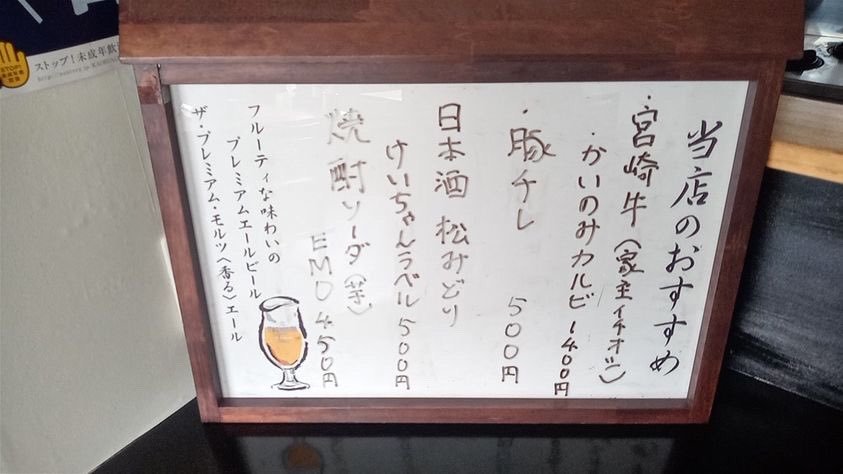 当店のおすすめ
・宮崎牛(家主イチオシ)
・かいのみカルビ 1400円
・豚チレ 500円
日本酒 松みどり
けいちゃんラベル 500円
焼酎ソーダ(芋)
EMO 450円
フルーティな味わいの
プレミアムエールビール
ザ・プレミアム・モルツ〈香る〉エール
ストップ!未成年飲
STOP!